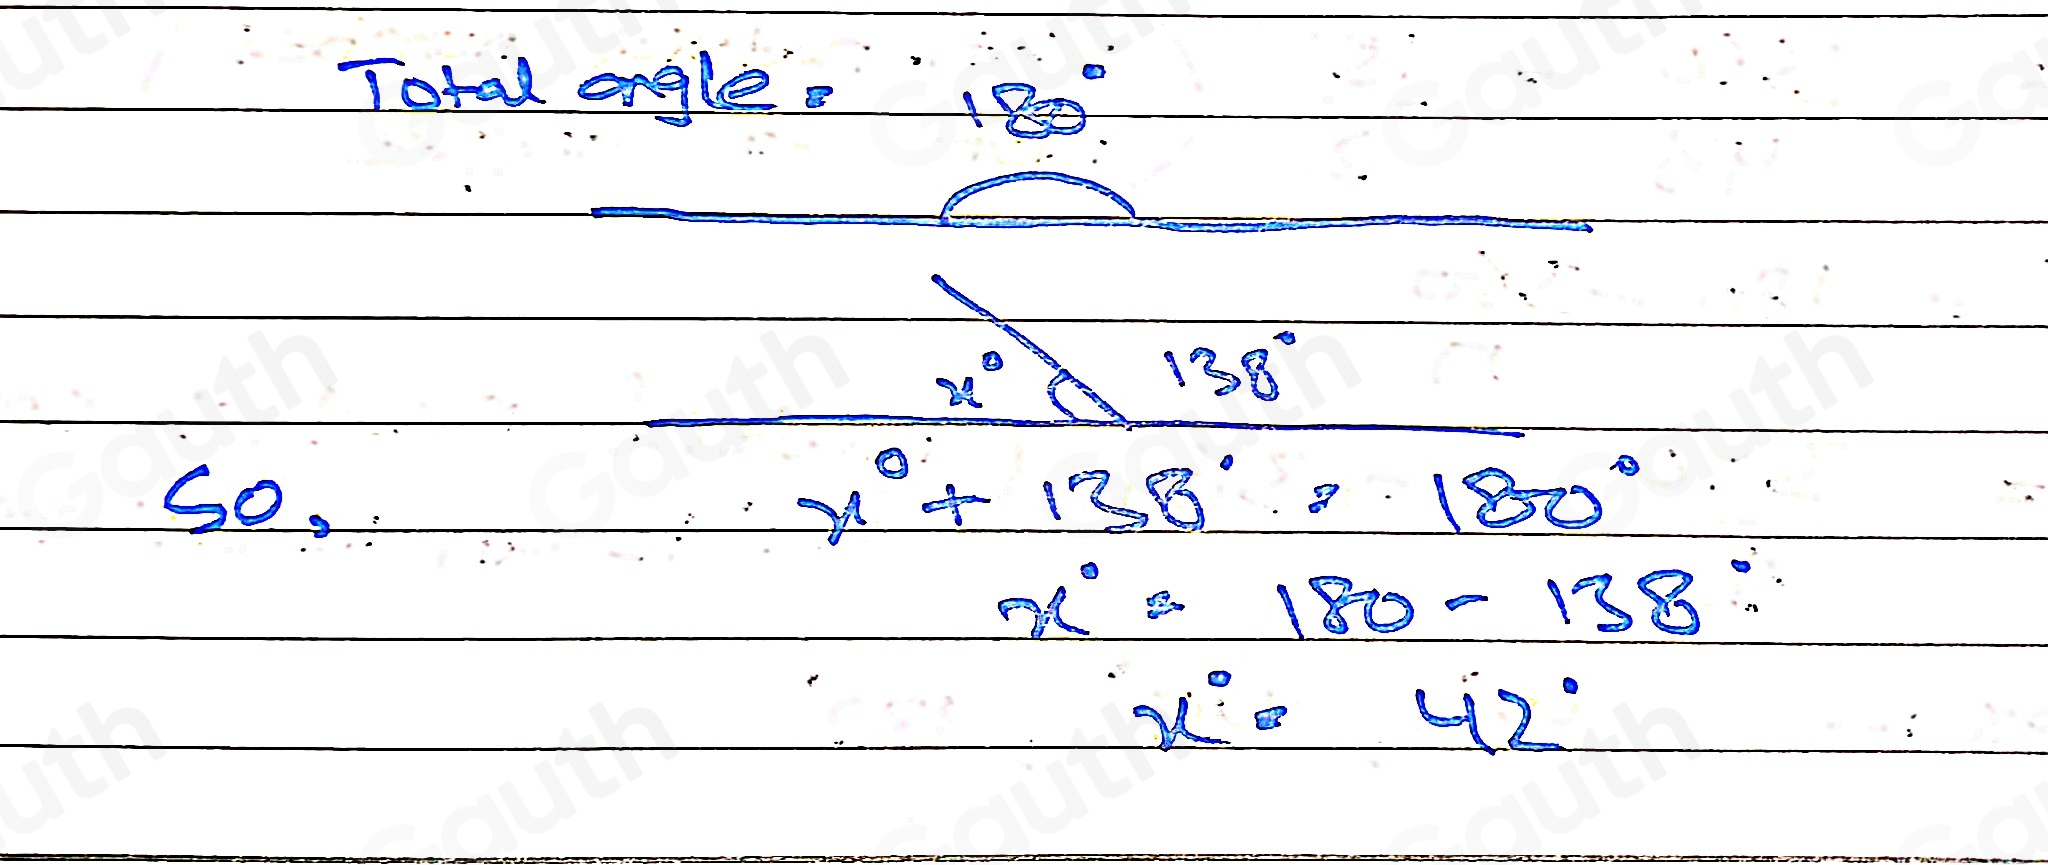 Total angle = 180°
x° 138°
So, x° + 138° = 180°
x° = 180 - 138°
x° = 42°
Gauth